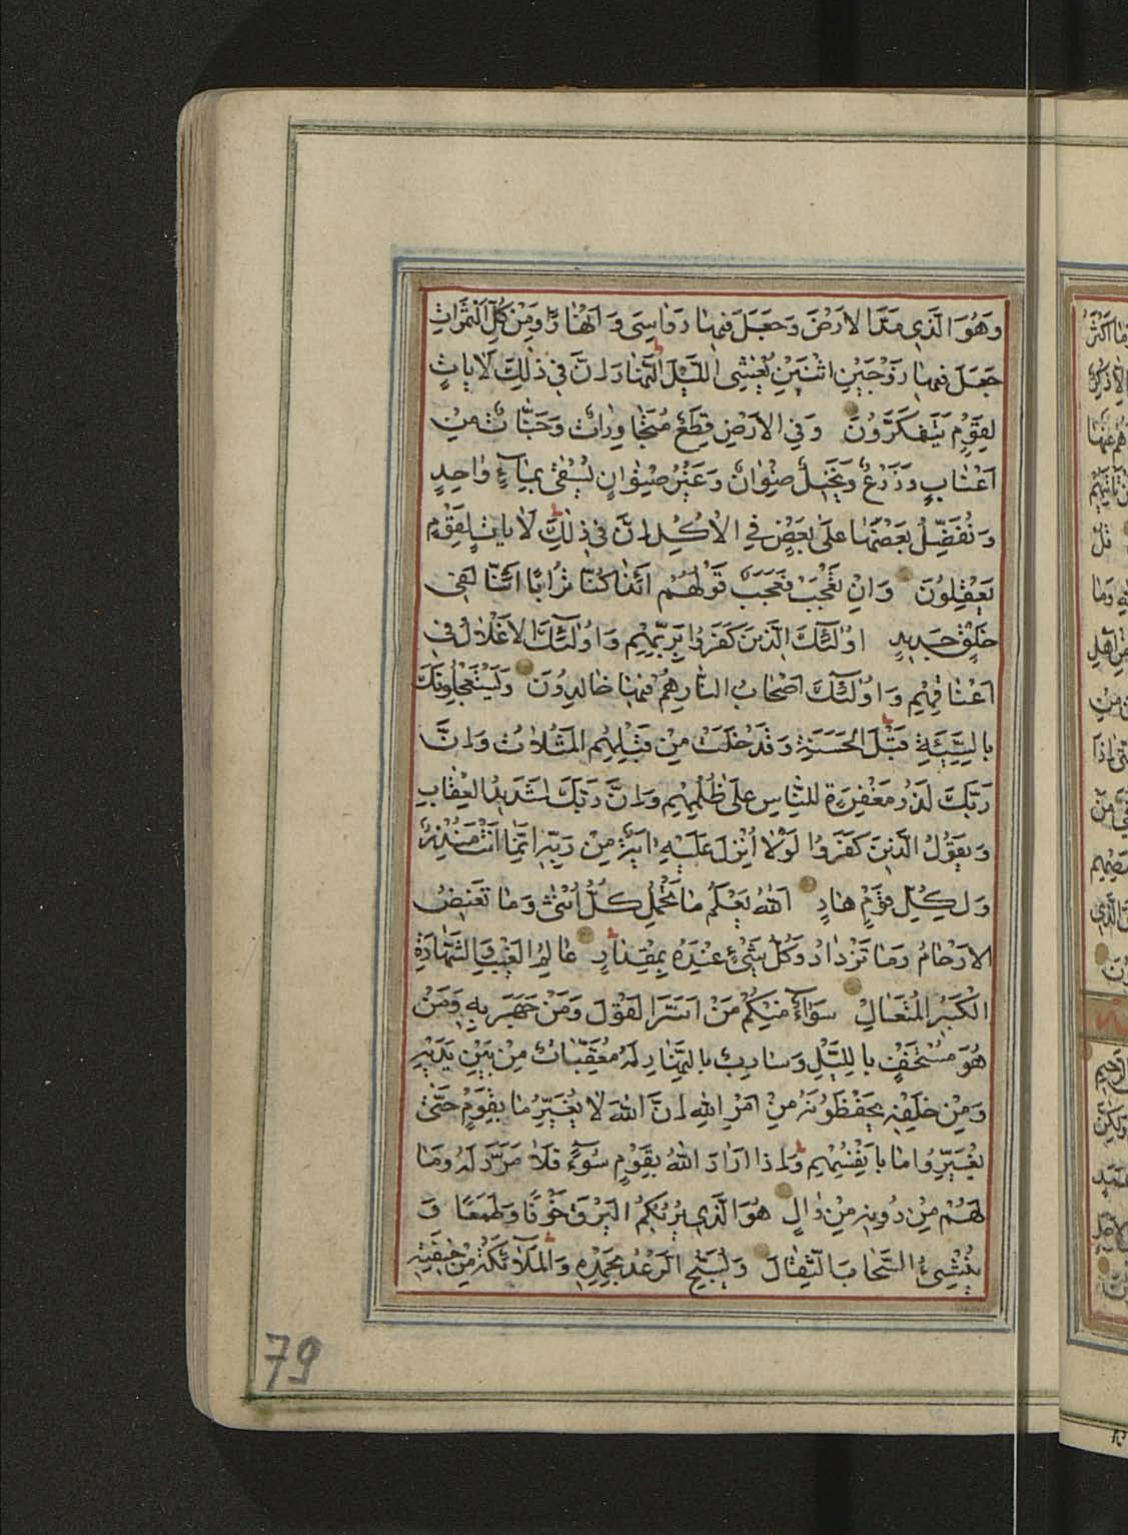 وَهُوَ الَّذِي مَدَّ الاَرْضَ وَجَعَلَ فِيهَا رَوَاسِيَ وَ اَنْهَارًا وَمِنْ كُلِّ الثَّمَرَاتِ
جَعَلَ فِيهَا زَوْجَيْنِ اثْنَيْنِ يُغْشِي اللَّيْلَ النَّهَارَ اِنَّ فِي ذٰلِكَ لَاٰيَاتٍ
لِقَوْمٍ يَتَفَكَّرُونَ وَفِي الاَرْضِ قِطَعٌ مُتَجَاوِرَاتٌ وَجَنَّاتٌ مِنْ
اَعْنَابٍ وَزَرْعٌ وَنَخِيلٌ صِنْوَانٌ وَغَيْرُ صِنْوَانٍ يُسْقٰى بِمَاۤءٍ وَاحِدٍ
وَنُفَضِّلُ بَعْضَهَا عَلٰى بَعْضٍ فِي الاُكُلِ اِنَّ فِي ذٰلِكَ لَاٰيَاتٍ لِقَوْمٍ
يَعْقِلُونَ وَاِنْ تَعْجَبْ فَعَجَبٌ قَوْلُهُمْ اَئِذَا كُنَّا تُرَابًا اَئِنَّا لَفِي
خَلْقٍ جَدِيدٍ اُولٰۤئِكَ الَّذِينَ كَفَرُوا بِرَبِّهِمْ وَاُولٰۤئِكَ الاَغْلَالُ فِي
اَعْنَاقِهِمْ وَاُولٰۤئِكَ اَصْحَابُ النَّارِ هُمْ فِيهَا خَالِدُونَ وَيَسْتَعْجِلُونَكَ
بِالسَّيِّئَةِ قَبْلَ الْحَسَنَةِ وَقَدْ خَلَتْ مِنْ قَبْلِهِمُ الْمَثُلَاتُ وَاِنَّ
رَبَّكَ لَذُو مَغْفِرَةٍ لِلنَّاسِ عَلٰى ظُلْمِهِمْ وَاِنَّ رَبَّكَ لَشَدِيدُ الْعِقَابِ
وَيَقُولُ الَّذِينَ كَفَرُوا لَوْلَا اُنْزِلَ عَلَيْهِ اٰيَةٌ مِنْ رَبِّهِ اِنَّمَا اَنْتَ مُنْذِرٌ
وَلِكُلِّ قَوْمٍ هَادٍ اَللهُ يَعْلَمُ مَا تَحْمِلُ كُلُّ اُنْثٰى وَمَا تَغِيضُ
الاَرْحَامُ وَمَا تَزْدَادُ وَكُلُّ شَيْءٍ عِنْدَهُ بِمِقْدَارٍ عَالِمُ الْغَيْبِ وَالشَّهَادَةِ
الْكَبِيرُ الْمُتَعَالِ سَوَاۤءٌ مِنْكُمْ مَنْ اَسَرَّ الْقَوْلَ وَمَنْ جَهَرَ بِهِ وَمَنْ
هُوَ مُسْتَخْفٍ بِاللَّيْلِ وَسَارِبٌ بِالنَّهَارِ لَهُ مُعَقِّبَاتٌ مِنْ بَيْنِ يَدَيْهِ
وَمِنْ خَلْفِهِ يَحْفَظُونَهُ مِنْ اَمْرِ اللهِ اِنَّ اللهَ لَا يُغَيِّرُ مَا بِقَوْمٍ حَتّٰى
يُغَيِّرُوا مَا بِاَنْفُسِهِمْ وَاِذَا اَرَادَ اللهُ بِقَوْمٍ سُوۤءًا فَلَا مَرَدَّ لَهُ وَمَا
لَهُمْ مِنْ دُونِهِ مِنْ وَالٍ هُوَ الَّذِي يُرِيكُمُ الْبَرْقَ خَوْفًا وَطَمَعًا وَ
يُنْشِئُ السَّحَابَ الثِّقَالَ وَيُسَبِّحُ الرَّعْدُ بِحَمْدِهِ وَالْمَلَاۤئِكَةُ مِنْ خِيفَتِهِ
79